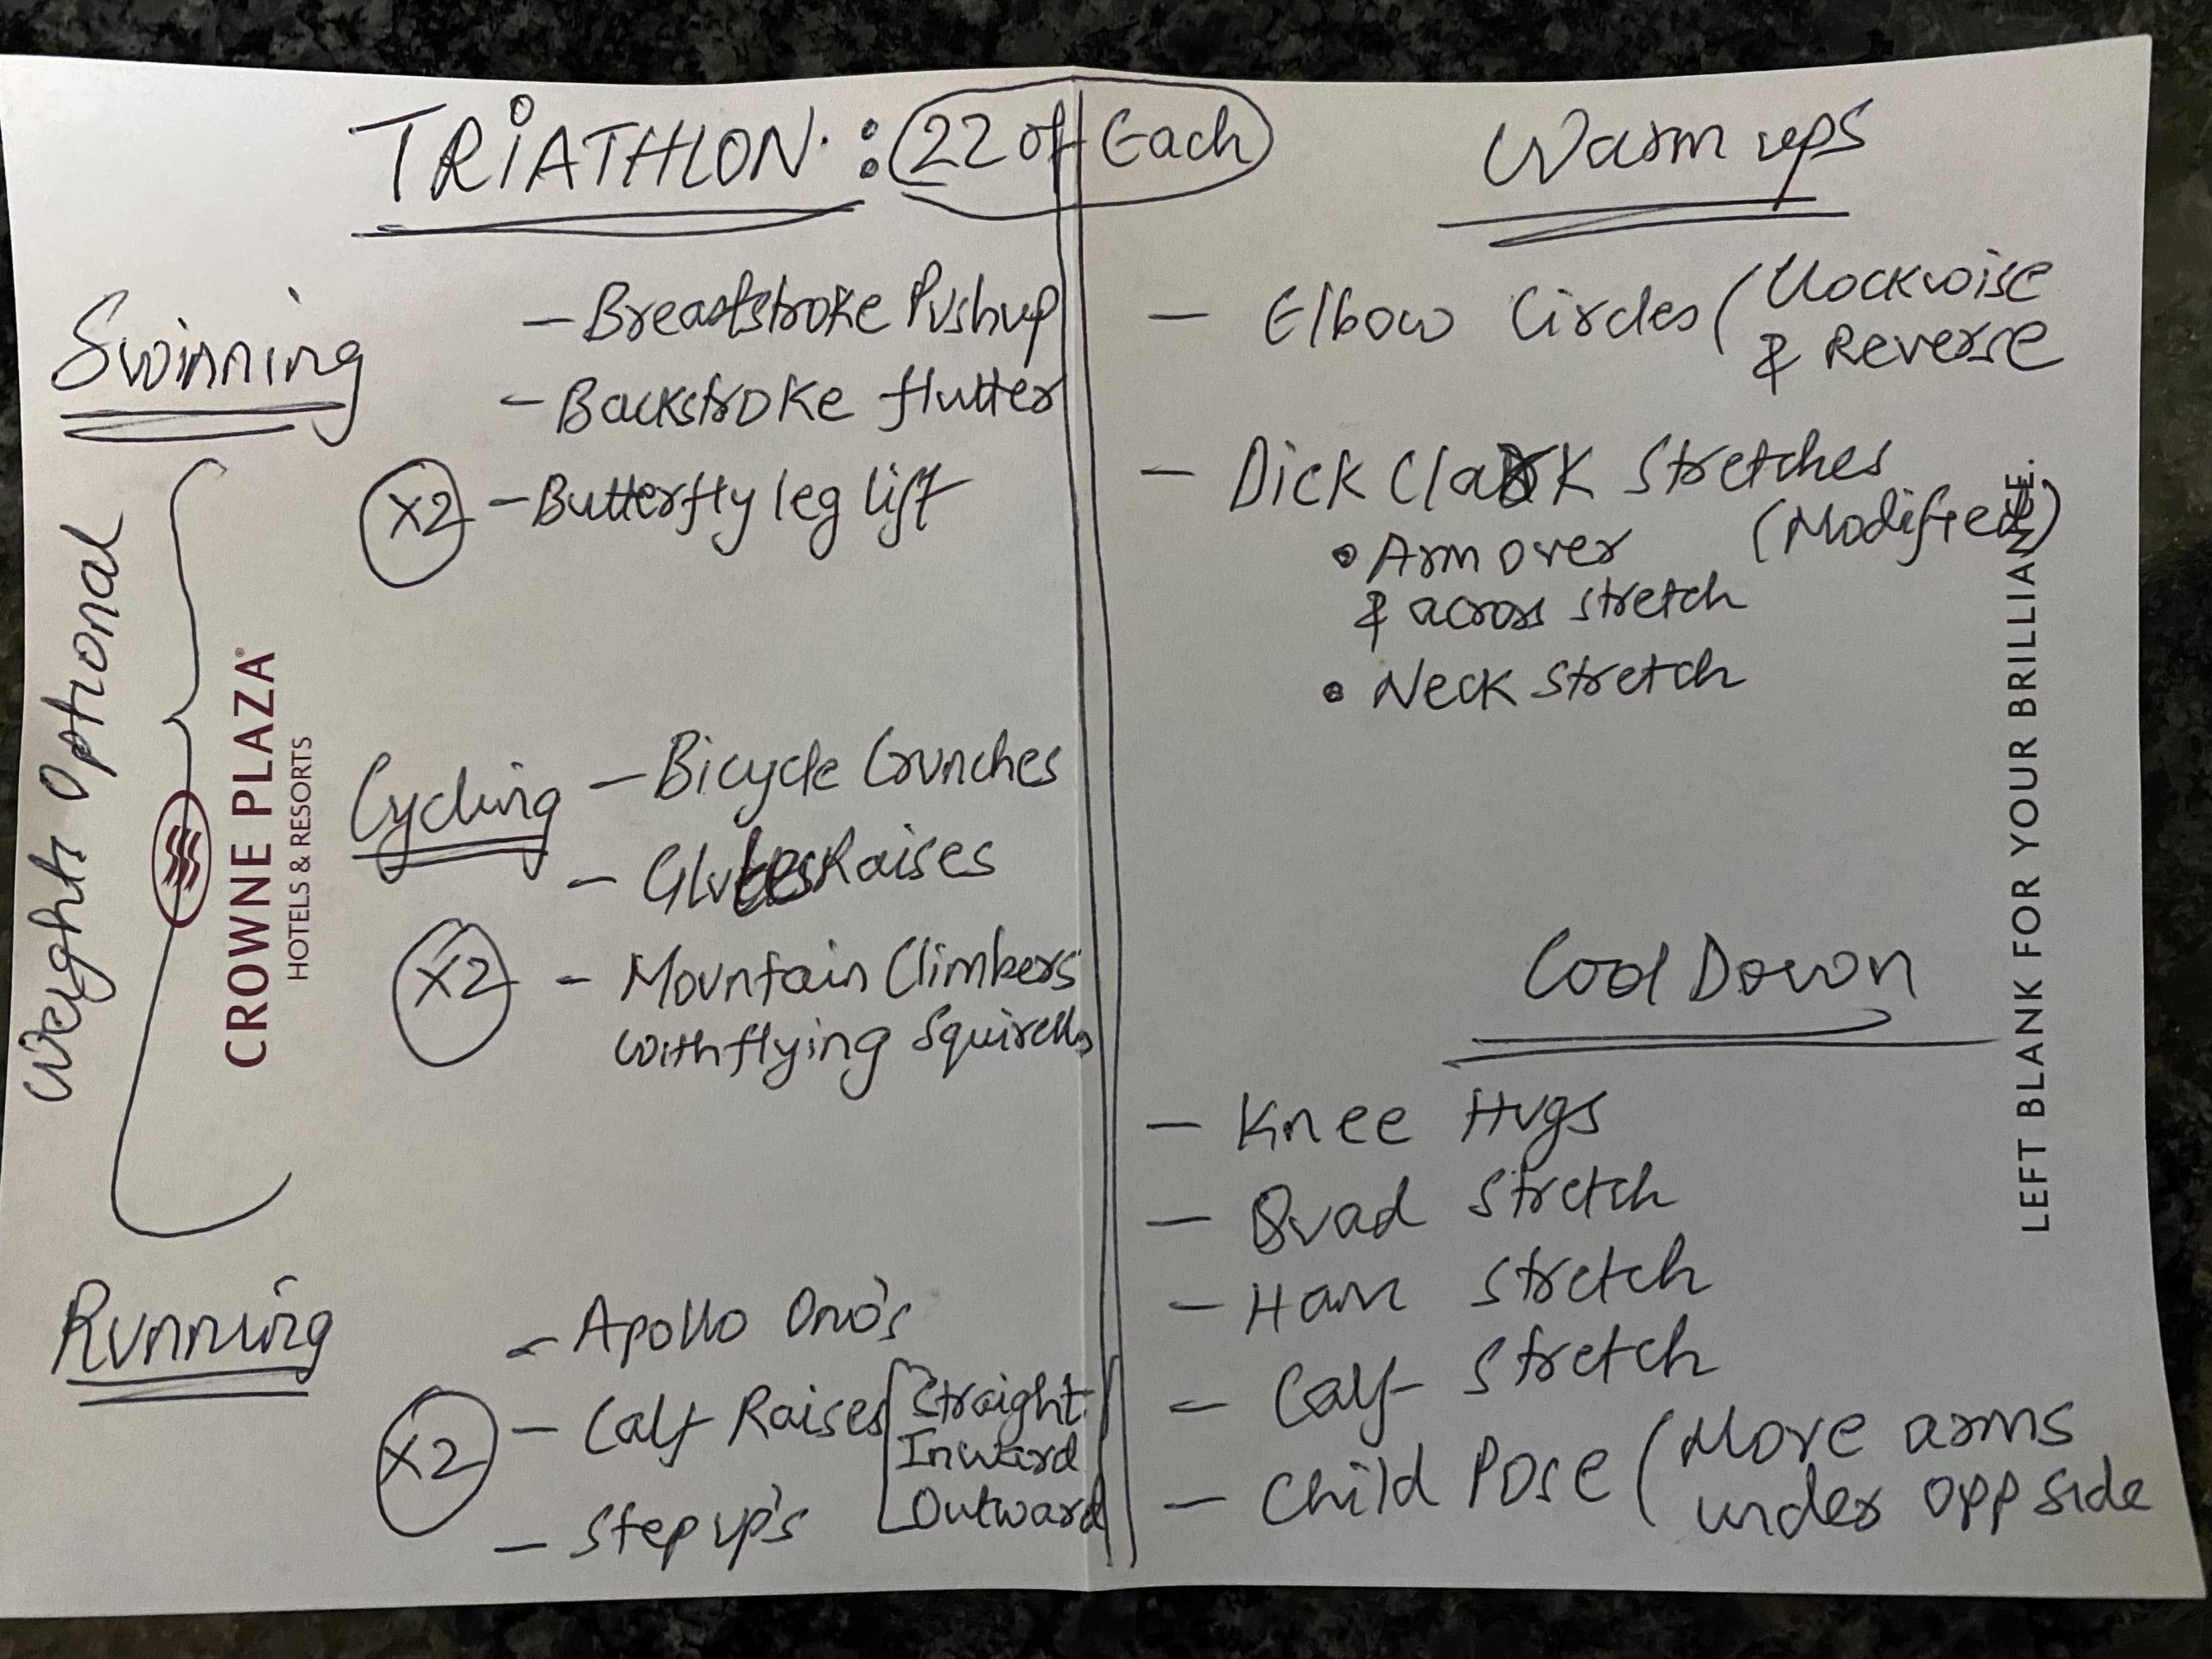 TRIATHLON : 22 of Each
Swinning
- Breaststroke Pushup
- Backstroke flutter
X2 - Butterfly leg lift
Weights Optional
CROWNE PLAZA
HOTELS & RESORTS
Cycling - Bicycle Crunches
- Glutes Raises
X2 - Mountain Climbers
with flying Squirells
Running
- Apollo Ono's
X2 - Calf Raises [Straight
Inward
Outward
- Step up's
Warm ups
- Elbow Circles (Clockwise
& Reverse
- Dick Clark Stretches
(Modified)
• Arm over
& across stretch
• Neck stretch
Cool Down
- Knee Hugs
- Quad Stretch
- Ham Stretch
- Calf Stretch
- Child Pose (Move arms
under opp side
LEFT BLANK FOR YOUR BRILLIANCE.